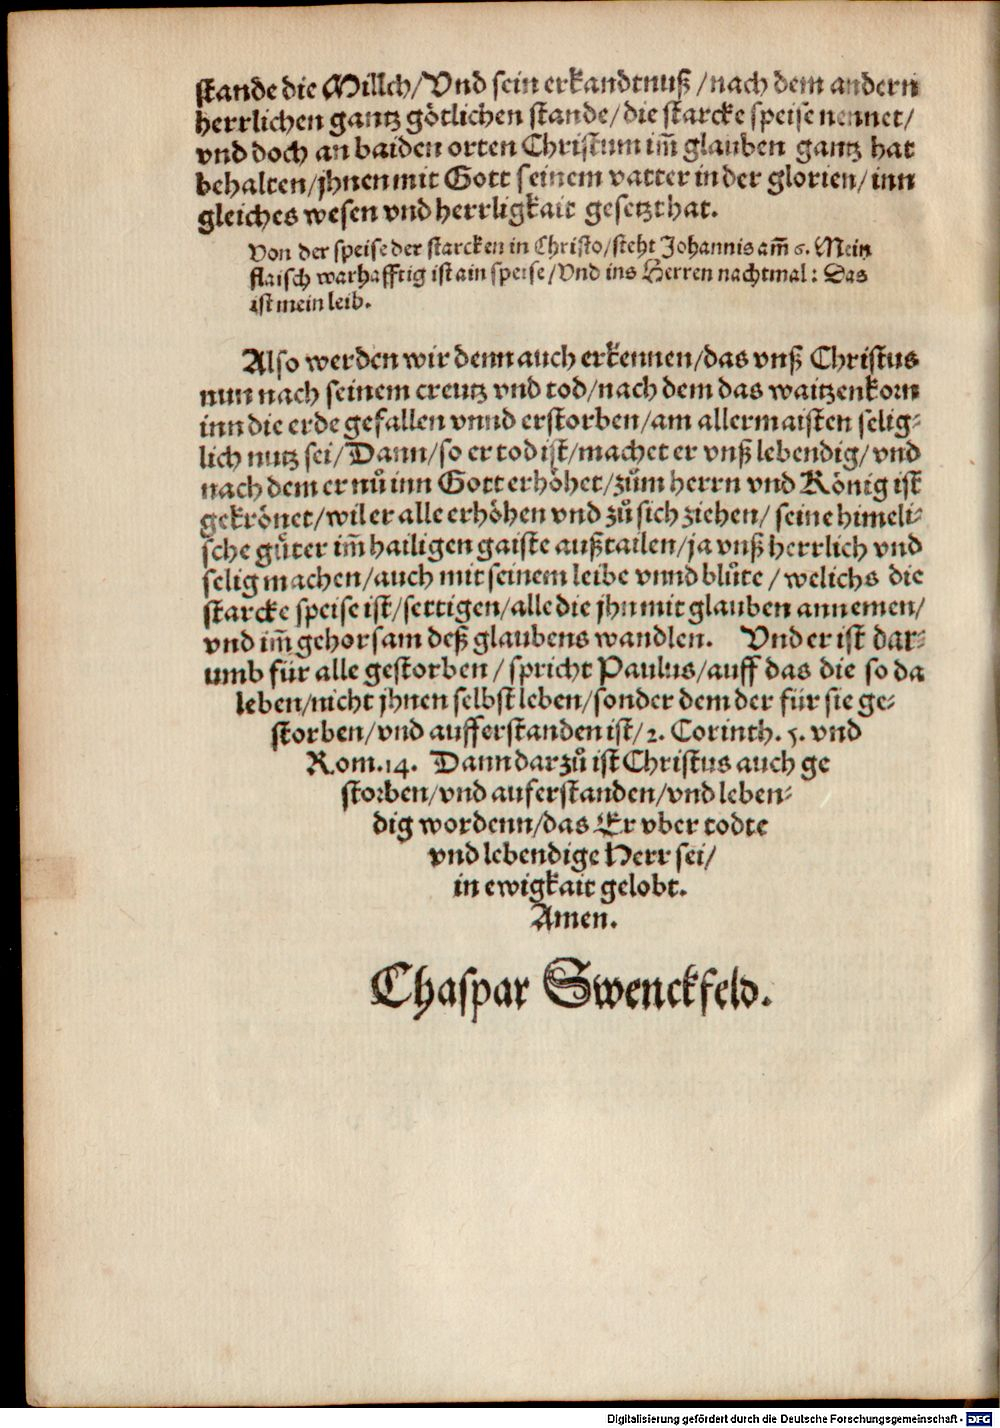 stande die Millch/Vnd sein erkandtnuß/nach dem andern
herrlichen gantz götlichen stande/die starcke speise nennet/
vnd doch an baiden orten Christum im̃ glauben gantz hat
behalten/jhnen mit Gott seinem vatter in der glorien/inn
gleiches wesen vnd herrligkait gesetzt hat.
Von der speise der starcken in Christo/steht Johannis am̃ 6. Mein
flaisch warhafftig ist ain speise/Vnd ins Herren nachtmal: Das
ist mein leib.
Also werden wir denn auch erkennen/das vnß Christus
nun nach seinem creutz vnd tod/nach dem das waitzenkorn
inn die erde gefallen vnnd erstorben/am allermaisten selig-
lich nutz sei/Dann/so er tod ist/machet er vnß lebendig/vnd
nach dem er nůn inn Gott erhöhet/zům herrn vnd König ist
gekrönet/wil er alle erhöhen vnd zů sich ziehen/ seine himeli-
sche gůter im̃ hailigen gaiste außtailen/ja vnß herrlich vnd
selig machen/auch mit seinem leibe vnnd blůte/welichs die
starcke speise ist/settigen/alle die jhn mit glauben annemen/
vnd im̃ gehorsam deß glaubens wandlen. Vnd er ist dar-
umb für alle gestorben/spricht Paulus/auff das die so da
leben/nicht jhnen selbst leben/sonder dem der für sie ge-
storben/vnd aufferstanden ist/2. Corinth. 5. vnd
Rom. 14. Dann darzů ist Christus auch ge
storben/vnd auferstanden/vnd leben-
dig wordenn/das Er vber todte
vnd lebendige Herr sei/
in ewigkait gelobt.
Amen.
Chaspar Swenckfeld.
Digitalisierung gefördert durch die Deutsche Forschungsgemeinschaft - DFG